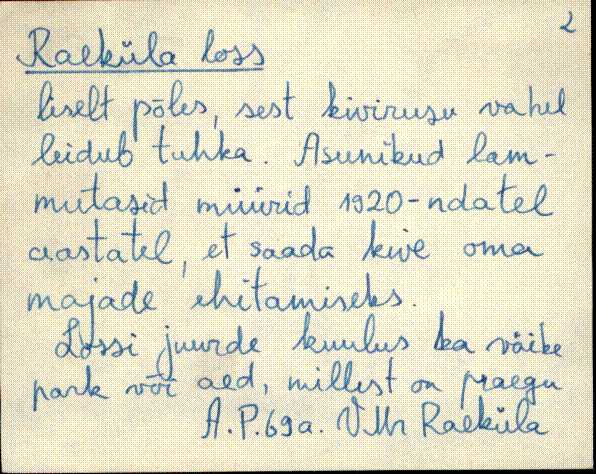 2
Raeküla loss
liselt põles, sest kivirusu vahel
leidub tuhka. Asunikud lam-
mutasid müürid 1920-ndatel
aastatel, et saada kive oma
majade ehitamiseks.
Lossi juurde kuulus ka väike
park või aed, millest on praegu
A.P. 69a. V.Mr Raeküla